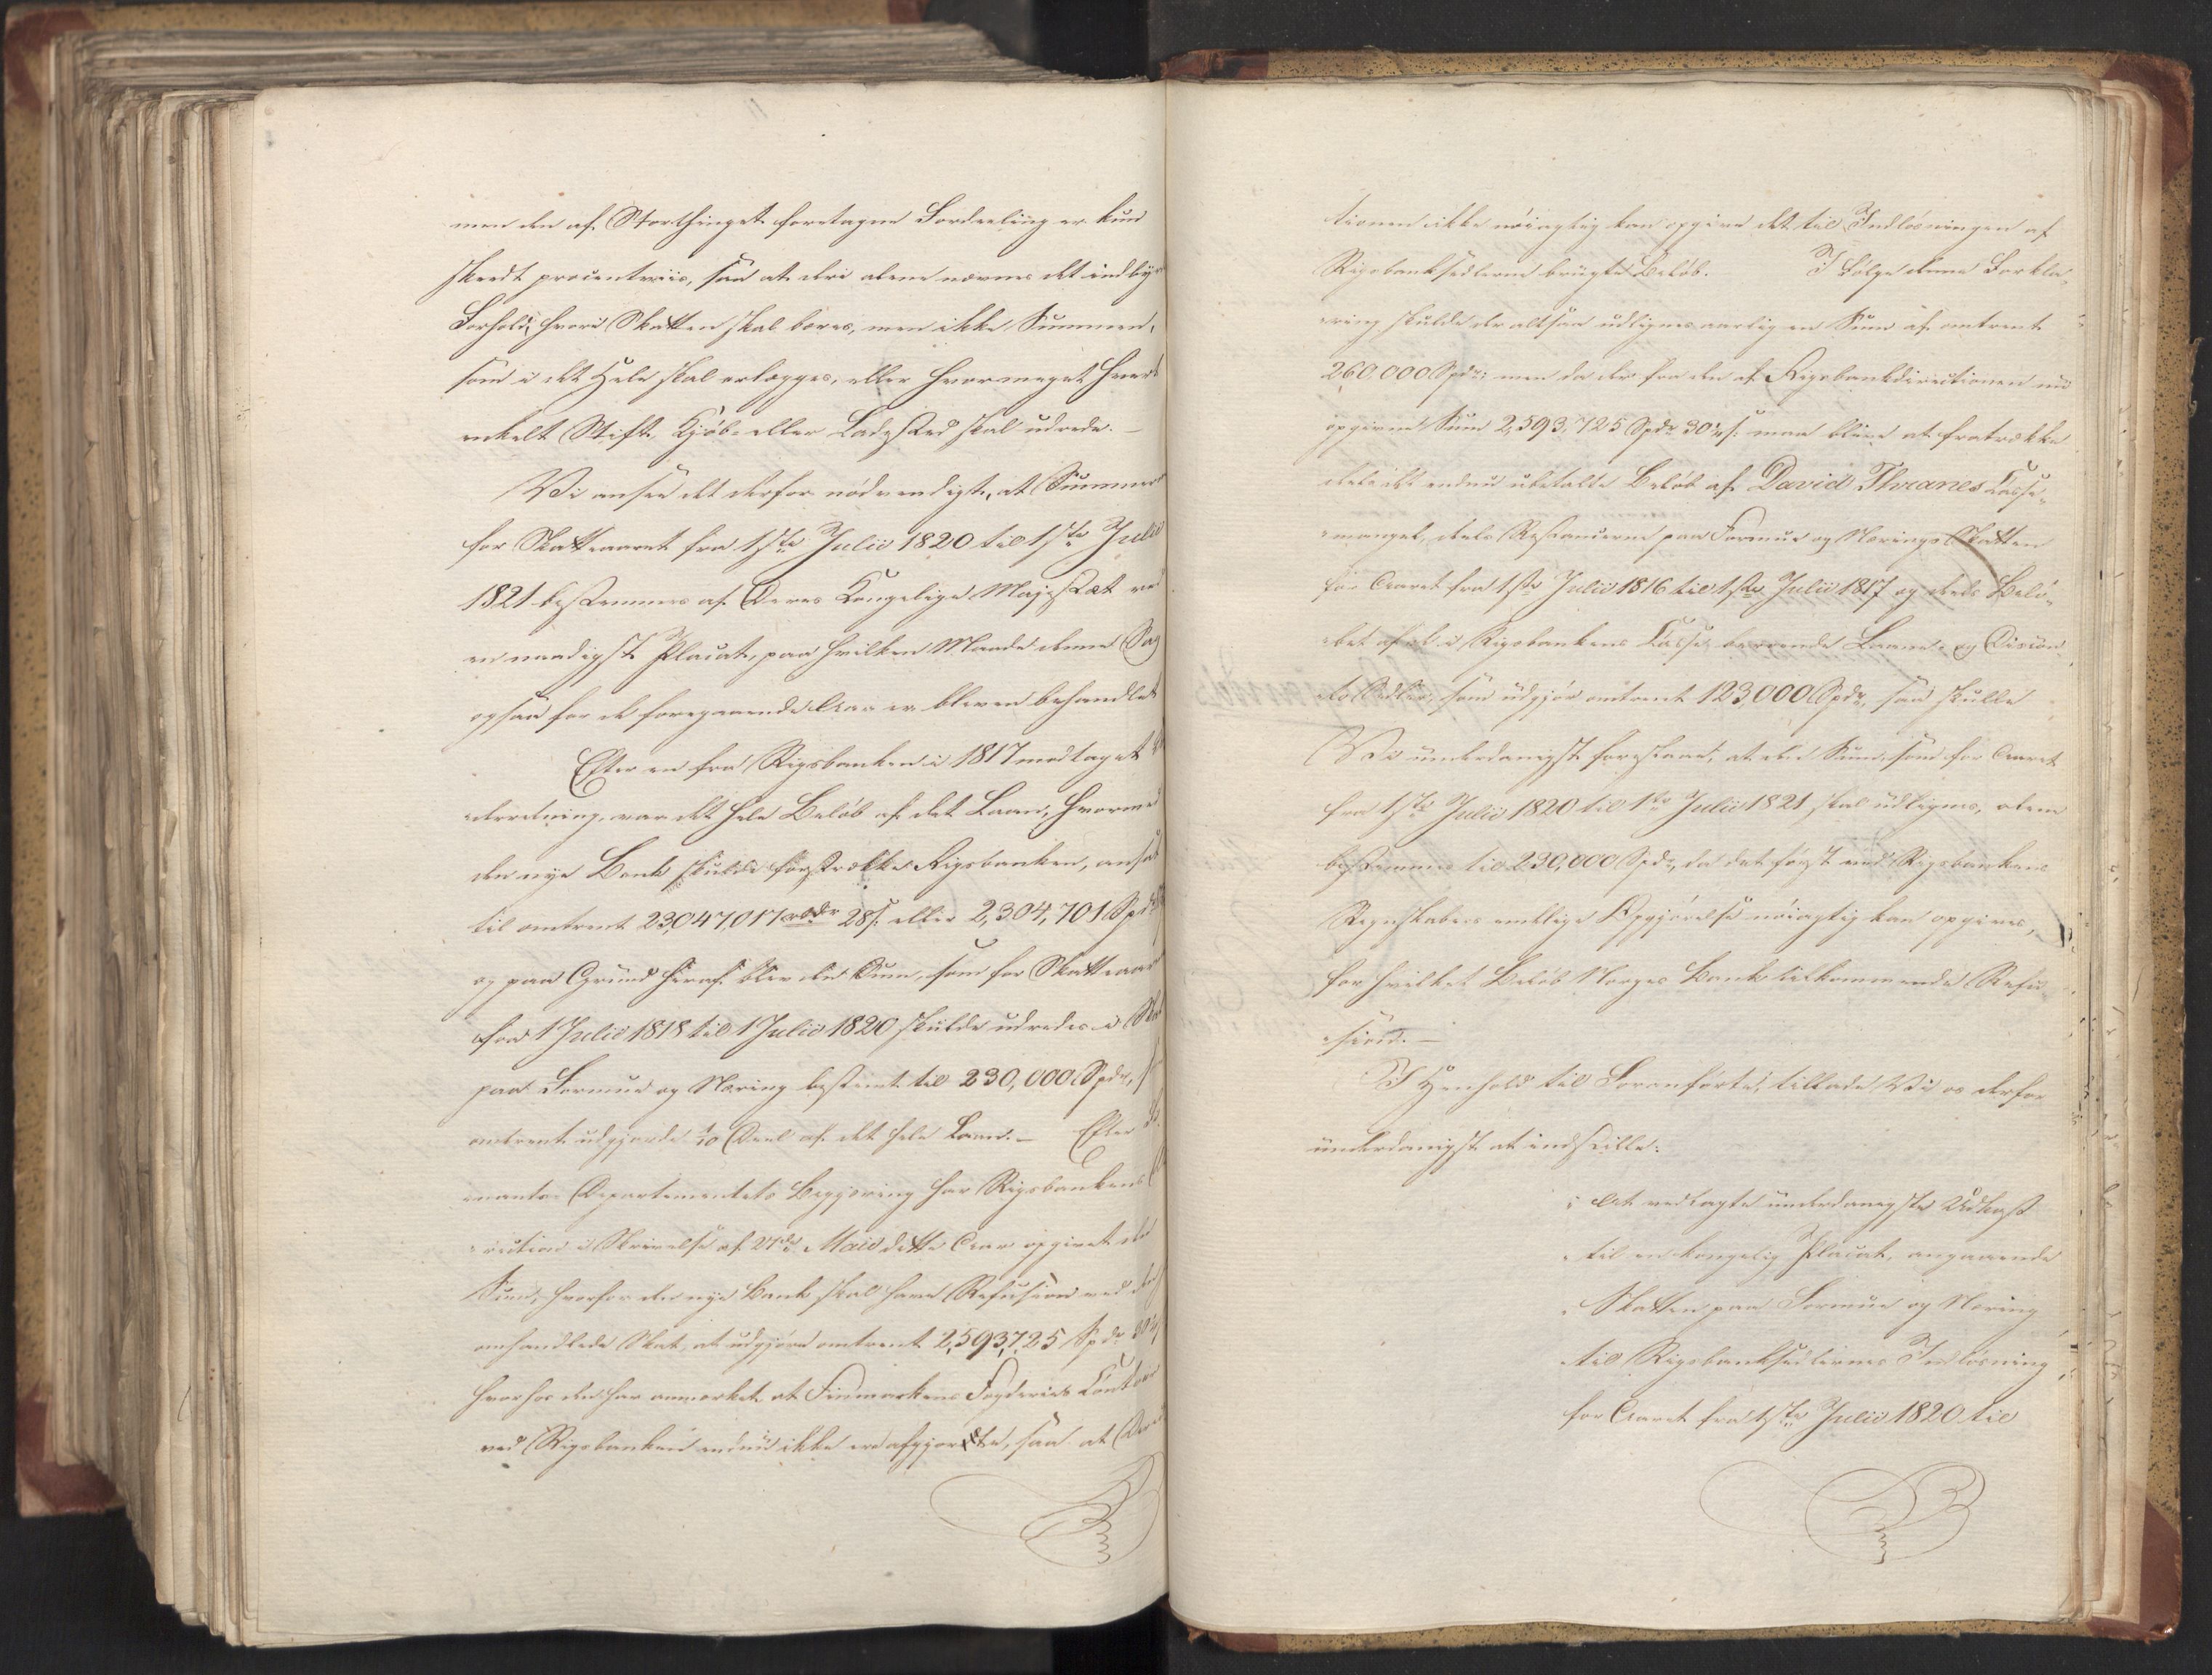 men den af Storthinget foretagne Fordeeling er kun
skeedt procentviis, saa at deri alene nævnes det indbyr
Forhold, hvori Skatten skal bæres, men ikke Summen,
som i det Hele skal erlægges, eller hvormeget hvert
enkelt Stift, Kjøb- eller Ladested skal udrede. —
Vi ansee det derfor nødvendigt, at Summen
for Skatteaaret fra 1ste Julii 1820 til 1ste Julii
1821 bestemmes af Deres Kongelige Majestæt ved
en naadigst Placat, paa hvilken Maade denne Sag
ogsaa for de foregaaende Aar er bleven behandlet
Efter en fra Rigsbanken i 1817 modtaget
derretning, var det hele Beløb af det Laan, hvormed
den nye Bank skulde forstrække Rigsbanken, ansat
til omtrent 23,047,017 rbdr 28 s. eller 2,304,701 Spdr
og paa Grund heraf blev den Sum, som for Skatteaaret
fra 1 Julii 1818 til 1 Julii 1820 skulde udredes i Skat
paa Formue og Næring bestemt til 230,000 Spdr,
omtrent udgjorde 1/10 Deel af det hele Laan. — Efter
nants- Departementets Begjæring har Rigsbankens
rection i Skrivelse af 27de Maii dette Aar opgivet den
Sum, hvorfor den nye Bank skal have Refusion ved den
omhandlede Skat, at udgjøre omtrent 2,593,725 Spdr 30
hvorhos den har anmærket at Finmarkens Fogderies Contoir
ved Rigsbanken endnu ikke ere afgjordte, saa at
tionen ikke nøiagtig kan opgive det til Indløsningen af
Rigsbanksedlerne brugte Beløb. I Følge denne Forkla-
-ring skulde der altsaa udlignes aarlig en Sum af omtrent
260,000 Spdr; men da der fra den af Rigsbankdirectionen nu
opgivne Sum 2,593,725 Spdr 30 s. maa blive at fratrække
deels det endnu ubetalte Beløb af David Thranes Casse-
-mangel, deels Restancerne paa Formue og Nærings Skatten
for Aaret fra 1ste Julii 1816 til 1ste Julii 1817 og deels Belø-
-bet af de i Rigsbankens Casse beroende Laane- og Discon-
to Sedler, som udgjør omtrent 123,000 Spdr, saa skulle
Vi underdanigst foreslaae, at den Sum, som for Aaret
fra 1ste Julii 1820 til 1ste Julii 1821 skal udlignes, alene
bestemmes til 230,000 Spdr, da det først ved Rigsbankens
Regnskabers endelige Opgjørelse nøiagtig kan opgives,
for hvilket Beløb Norges Bank tilkommende Refu-
-sion. —
I Henhold til Foranførte, tillade Vi os derfor
underdanigst at indstille:
at vedlagte underdanigste Udkast
til en kongelig Placat, angaaende
Skatten paa Formue og Næring
til Rigsbanksedlernes Indløsning
for Aaret fra 1ste Julii 1820 til